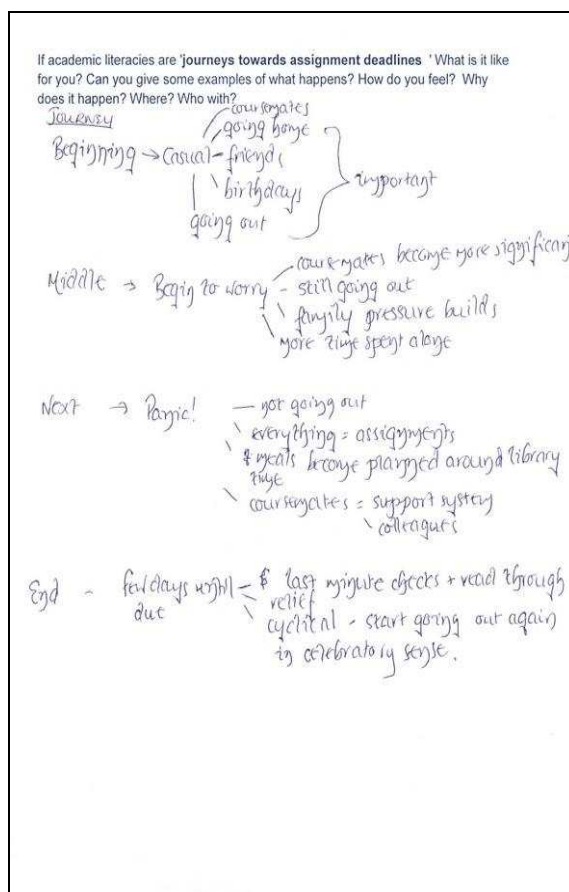 If academic literacies are 'journeys towards assignment deadlines ' What is it like
for you? Can you give some examples of what happens? How do you feel? Why
does it happen? Where? Who with?
JOURNEY
coursemates
going home
Beginning → Casual - friends
birthdays
going out
important
coursemates become more significant
Middle → Begin to worry - still going out
family pressure builds
more time spent alone
Next → Panic! - not going out
everything = assignments
meals become planned around library
time
coursemates = support system
colleagues
End - few days until - last minute checks + read through
due
relief
cyclical - start going out again
in celebratory sense.